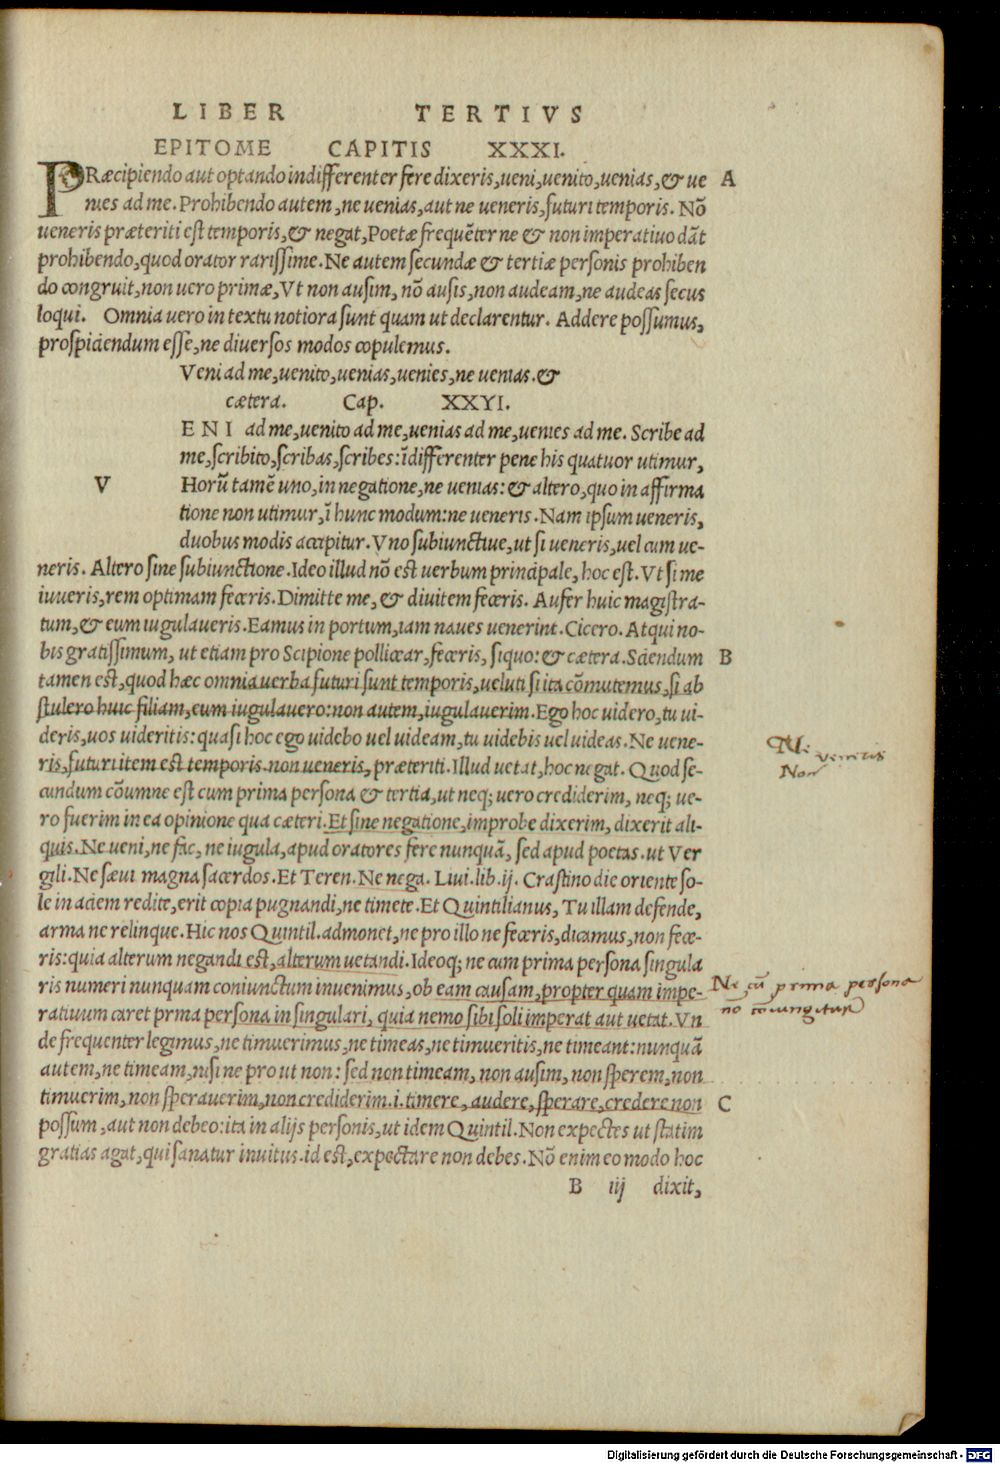 LIBER TERTIVS
EPITOME CAPITIS XXXI.
PRæcipiendo aut optando indifferenter fere dixeris, ueni, uenito, uenias, & ue A
nies ad me. Prohibendo autem, ne uenias, aut ne ueneris, futuri temporis. Nõ
ueneris præteriti est temporis, & negat, Poetæ frequẽter ne & non imperatiuo dãt
prohibendo, quod orator rarissime. Ne autem secundæ & tertiæ personis prohiben
do congruit, non uero primæ, Vt non ausim, nõ ausis, non audeam, ne audeas secus
loqui. Omnia uero in textu notiora sunt quam ut declarentur. Addere possumus,
prospiciendum esse, ne diuersos modos copulemus.
Veni ad me, uenito, uenias, uenies, ne uenias. &
cætera. Cap. XXYI.
ENI ad me, uenito ad me, uenias ad me, uenies ad me. Scribe ad
me, scribito, scribas, scribes: ĩdifferenter pene his quatuor utimur,
V Horũ tamẽ uno, in negatione, ne uenias: & altero, quo in affirma
tione non utimur, ĩ hunc modum: ne ueneris. Nam ipsum ueneris,
duobus modis accipitur. Vno subiunctiue, ut si ueneris, uel cum ue-
neris. Altero sine subiunctione. Ideo illud nõ est uerbum principale, hoc est. Vt si me
iuueris, rem optimam feceris. Dimitte me, & diuitem feceris. Aufer huic magistra-
tum, & eum iugulaueris. Eamus in portum, iam naues uenerint. Cicero. Atqui no-
bis gratissimum, ut etiam pro Scipione pollicear, feceris, si quo: & cætera. Sciendum B
tamen est, quod hæc omnia uerba futuri sunt temporis, ueluti si ita cõmutemus, si ab
stulero huic filiam, eum iugulauero: non autem, iugulauerim. Ego hoc uidero, tu ui-
deris, uos uideritis: quasi hoc ego uidebo uel uideam, tu uidebis uel uideas. Ne uene-
ris, futuri item est temporis. non ueneris, præteriti. Illud uetat, hoc negat. Quod se-
Ne veneris
Non
cundum cõumne est cum prima persona & tertia, ut neq; uero crediderim, neq; ue-
ro fuerim in ea opinione qua cæteri. Et sine negatione, improbe dixerim, dixerit ali-
quis. Ne ueni, ne fac, ne iugula, apud oratores fere nunquã, sed apud poetas. ut Ver
gili. Ne sæui magna sacerdos. Et Teren. Ne nega. Liui. lib. ij. Crastino die oriente so-
le in aciem redite, erit copia pugnandi, ne timete. Et Quintilianus, Tu illam defende,
arma ne relinque. Hic nos Quintil. admonet, ne pro illo ne feceris, dicamus, non fece-
ris: quia alterum negandi est, alterum uetandi. Ideoq; ne cum prima persona singula
ris numeri nunquam coniunctum inuenimus, ob eam causam, propter quam impe-
Ne cũ prima persona
no coiungitur
ratiuum caret prma persona in singulari, quia nemo sibi soli imperat aut uetat. Vn
de frequenter legimus, ne timuerimus, ne timeas, ne timueritis, ne timeant: nunquã
autem, ne timeam, nisi ne pro ut non: sed non timeam, non ausim, non sperem, non
timuerim, non sperauerim, non crediderim. i. timere, audere, sperare, credere non C
possum, aut non debeo: ita in alijs personis, ut idem Quintil. Non expectes ut statim
gratias agat, qui sanatur inuitus. id est, expectare non debes. Nõ enim eo modo hoc
B iij dixit,
Digitalisierung gefördert durch die Deutsche Forschungsgemeinschaft - DFG